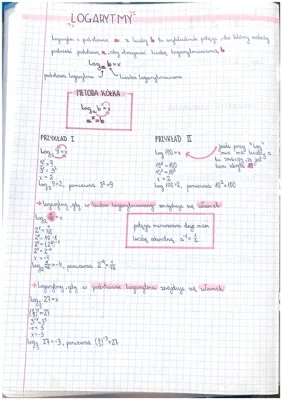 LOGARYTMY
logarytm o podstawie a z liczby b to wykładnik potęgi, do której należy
podnieść podstawę a, aby otrzymać liczbę logarytmowaną b
log_a b = x
podstawa logarytmu liczba logarytmowana
METODA KÓŁKA
log_a b = x
a^x = b
PRZYKŁAD I
log_3 9 = x
3^x = 9
3^x = 3^2
x = 2
log_3 9 = 2, ponieważ 3^2 = 9
PRZYKŁAD II
log 100 = x
10^x = 100
10^x = 10^2
x = 2
log 100 = 2, ponieważ 10^2 = 100
jeśli przy "log"
nie ma liczby a
to znaczy, że jest
tam ukryte 10
→ logarytmy, gdy w liczbie logarytmowanej znajduje się ułamek
log_2 1/16 = x
2^x = 1/16
2^x = 16^-1
2^x = (2^4)^-1
2^x = 2^-4
x = -4
log_2 1/16 = -4, ponieważ 2^-4 = 1/16
potęga minusowa daje nam
liczbę odwrotną a^-1 = 1/a
→ logarytmy, gdy w podstawie logarytmu znajduje się ułamek
log_1/3 27 = x
(1/3)^x = 27
3^-x = 3^3
-x = 3
x = -3
log_1/3 27 = -3, ponieważ (1/3)^-3 = 27